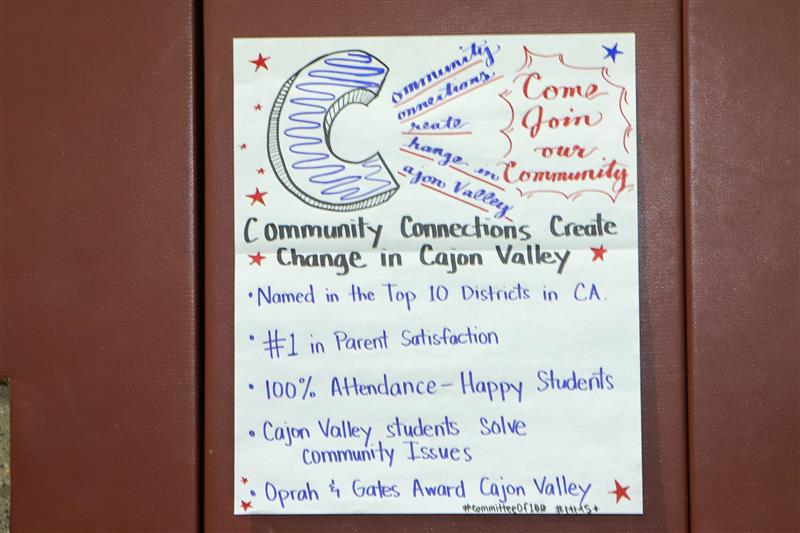 C
ommunity
onnections
reate
hange in
ajon Valley
Come
Join
our
Community
Community Connections Create
Change in Cajon Valley
•Named in the Top 10 Districts in CA.
• #1 in Parent Satisfaction
• 100% Attendance - Happy Students
• Cajon Valley students Solve
Community Issues
• Oprah & Gates Award Cajon Valley
#CommitteeOf100